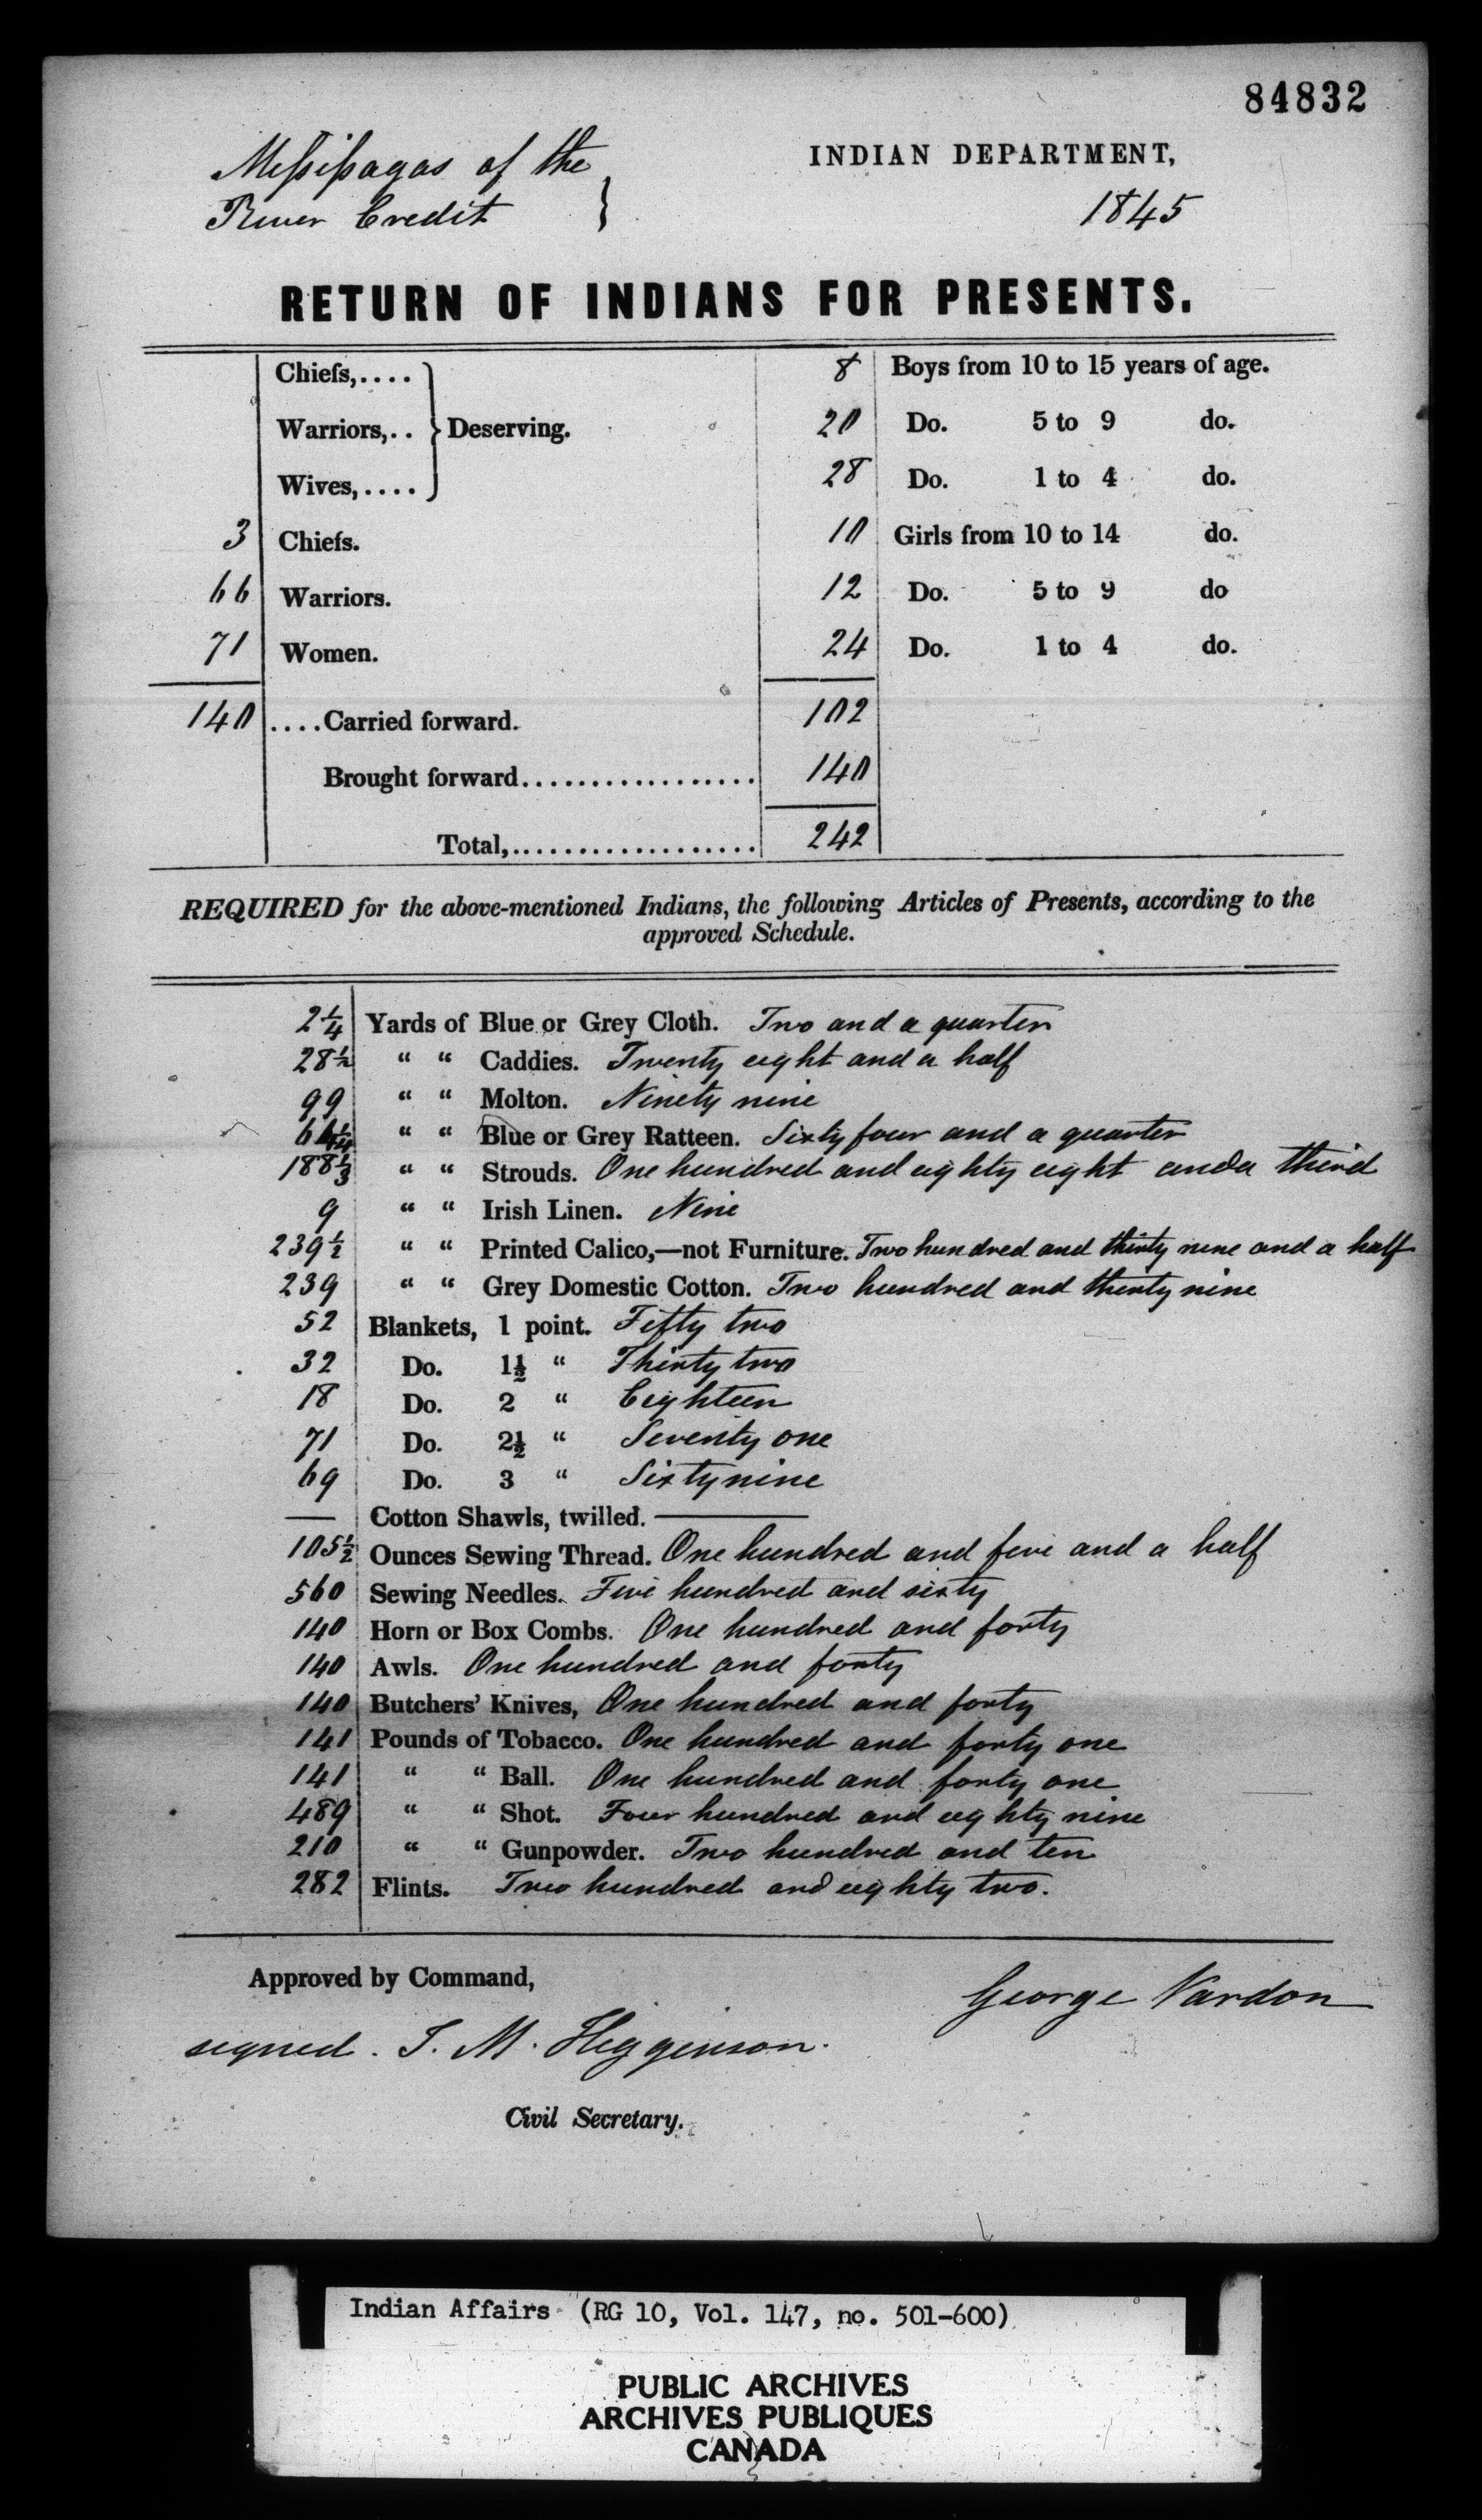 84832
Messissagas of the
River Credit }
INDIAN DEPARTMENT,
1845
RETURN OF INDIANS FOR PRESENTS.
Chiefs,....
Warriors,.. } Deserving.
Wives,....
3 Chiefs.
66 Warriors.
71 Women.
140 ....Carried forward.
8 Boys from 10 to 15 years of age.
20 Do. 5 to 9 do.
28 Do. 1 to 4 do.
10 Girls from 10 to 14 do.
12 Do. 5 to 9 do
24 Do. 1 to 4 do.
102
Brought forward.................. 140
Total,................... 242
REQUIRED for the above-mentioned Indians, the following Articles of Presents, according to the
approved Schedule.
2¼ Yards of Blue or Grey Cloth. Two and a quarter
28½ " " Caddies. Twenty eight and a half
99 " " Molton. Ninety nine
64¼ " " Blue or Grey Ratteen. Sixty four and a quarter
188⅓ " " Strouds. One hundred and eighty eight and a third
9 " " Irish Linen. Nine
239½ " " Printed Calico,—not Furniture. Two hundred and thirty nine and a half
239 " " Grey Domestic Cotton. Two hundred and thirty nine
52 Blankets, 1 point. Fifty two
32 Do. 1½ " Thirty two
18 Do. 2 " Eighteen
71 Do. 2½ " Seventy one
69 Do. 3 " Sixty nine
— Cotton Shawls, twilled. —
105½ Ounces Sewing Thread. One hundred and five and a half
560 Sewing Needles. Five hundred and sixty
140 Horn or Box Combs. One hundred and forty
140 Awls. One hundred and forty
140 Butchers' Knives, One hundred and forty
141 Pounds of Tobacco. One hundred and forty one
141 " " Ball. One hundred and forty one
489 " " Shot. Four hundred and eighty nine
210 " " Gunpowder. Two hundred and ten
282 Flints. Two hundred and eighty two.
Approved by Command,
George Vardon
signed. J. M. Higginson.
Civil Secretary.
Indian Affairs (RG 10, Vol. 147, no. 501-600)
PUBLIC ARCHIVES
ARCHIVES PUBLIQUES
CANADA